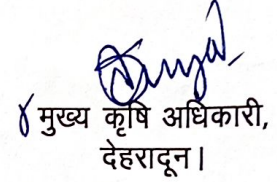 मुख्य कृषि अधिकारी,
देहरादून।